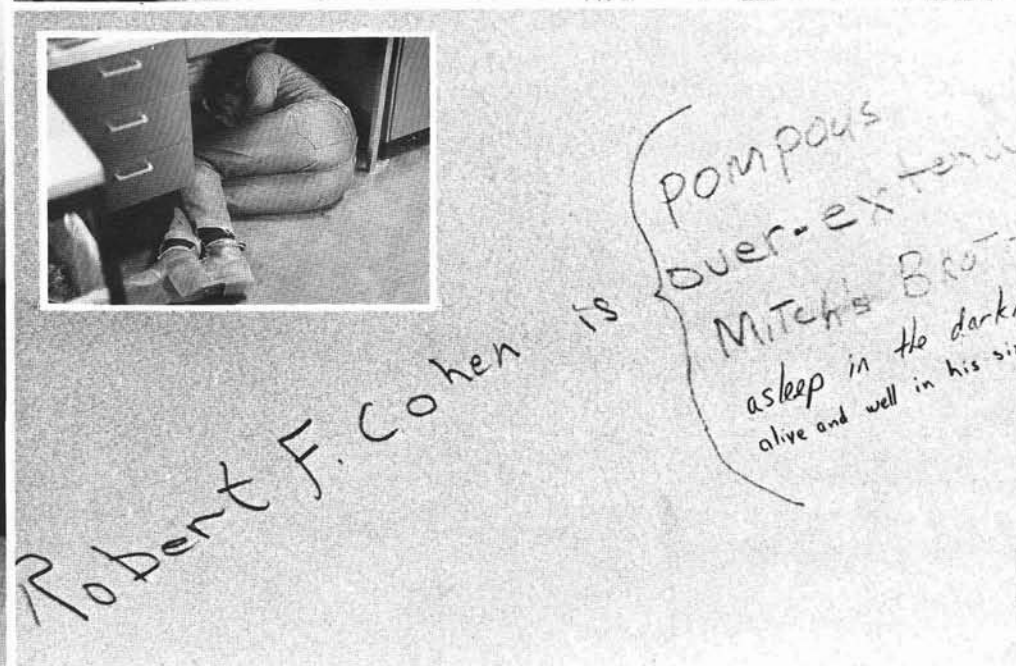 Robert F. Cohen is
pompous
over-exten
Mitch's Brot
asleep in the dark
alive and well in his